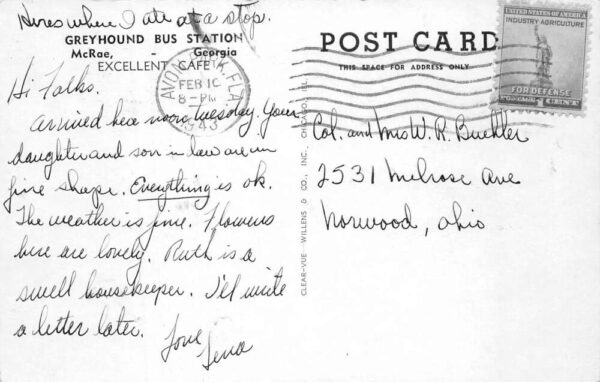 Heres where I ate at a stop.
GREYHOUND BUS STATION
McRae, - Georgia
EXCELLENT CAFE
Hi Folks.
Arrived here noon Tuesday. Your
daughter and son in law are in
fine shape. Everything is ok.
The weather is fine. Flowers
here are lovely. Ruth is a
swell housekeeper. I'll write
a letter later.
Love
Lena
AVON PARK, FLA.
FEB 10
8-PM
1943
CLEAR-VUE WILLENS & CO., INC., CHICAGO, ILL.
POST CARD
THIS SPACE FOR ADDRESS ONLY
UNITED STATES OF AMERICA
INDUSTRY AGRICULTURE
FOR DEFENSE
1
Col. and Mrs W. R. Buehler
2531 Melrose Ave
Norwood, Ohio